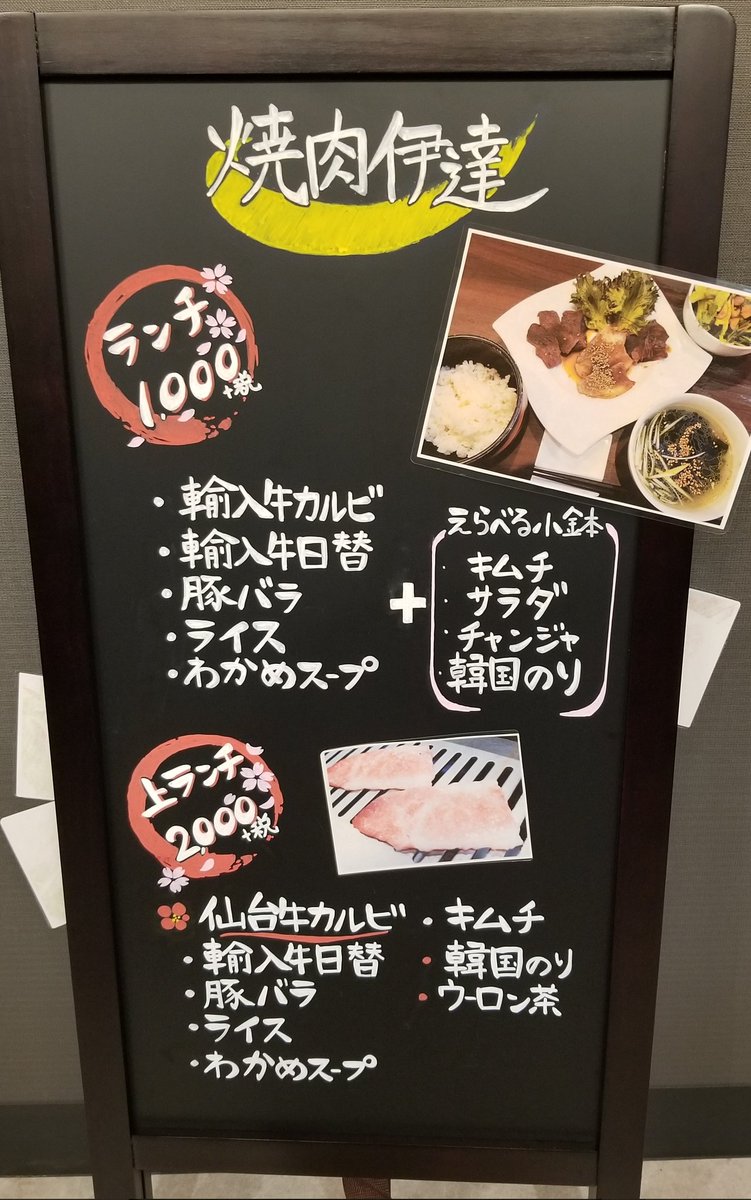 焼肉伊達
ランチ
1,000
+税
・輸入牛カルビ
・輸入牛日替
・豚バラ
・ライス
・わかめスープ
+
えらべる小鉢
・キムチ
・サラダ
・チャンジャ
・韓国のり
上ランチ
2,000
+税
仙台牛カルビ
・輸入牛日替
・豚バラ
・ライス
・わかめスープ
・キムチ
・韓国のり
・ウーロン茶